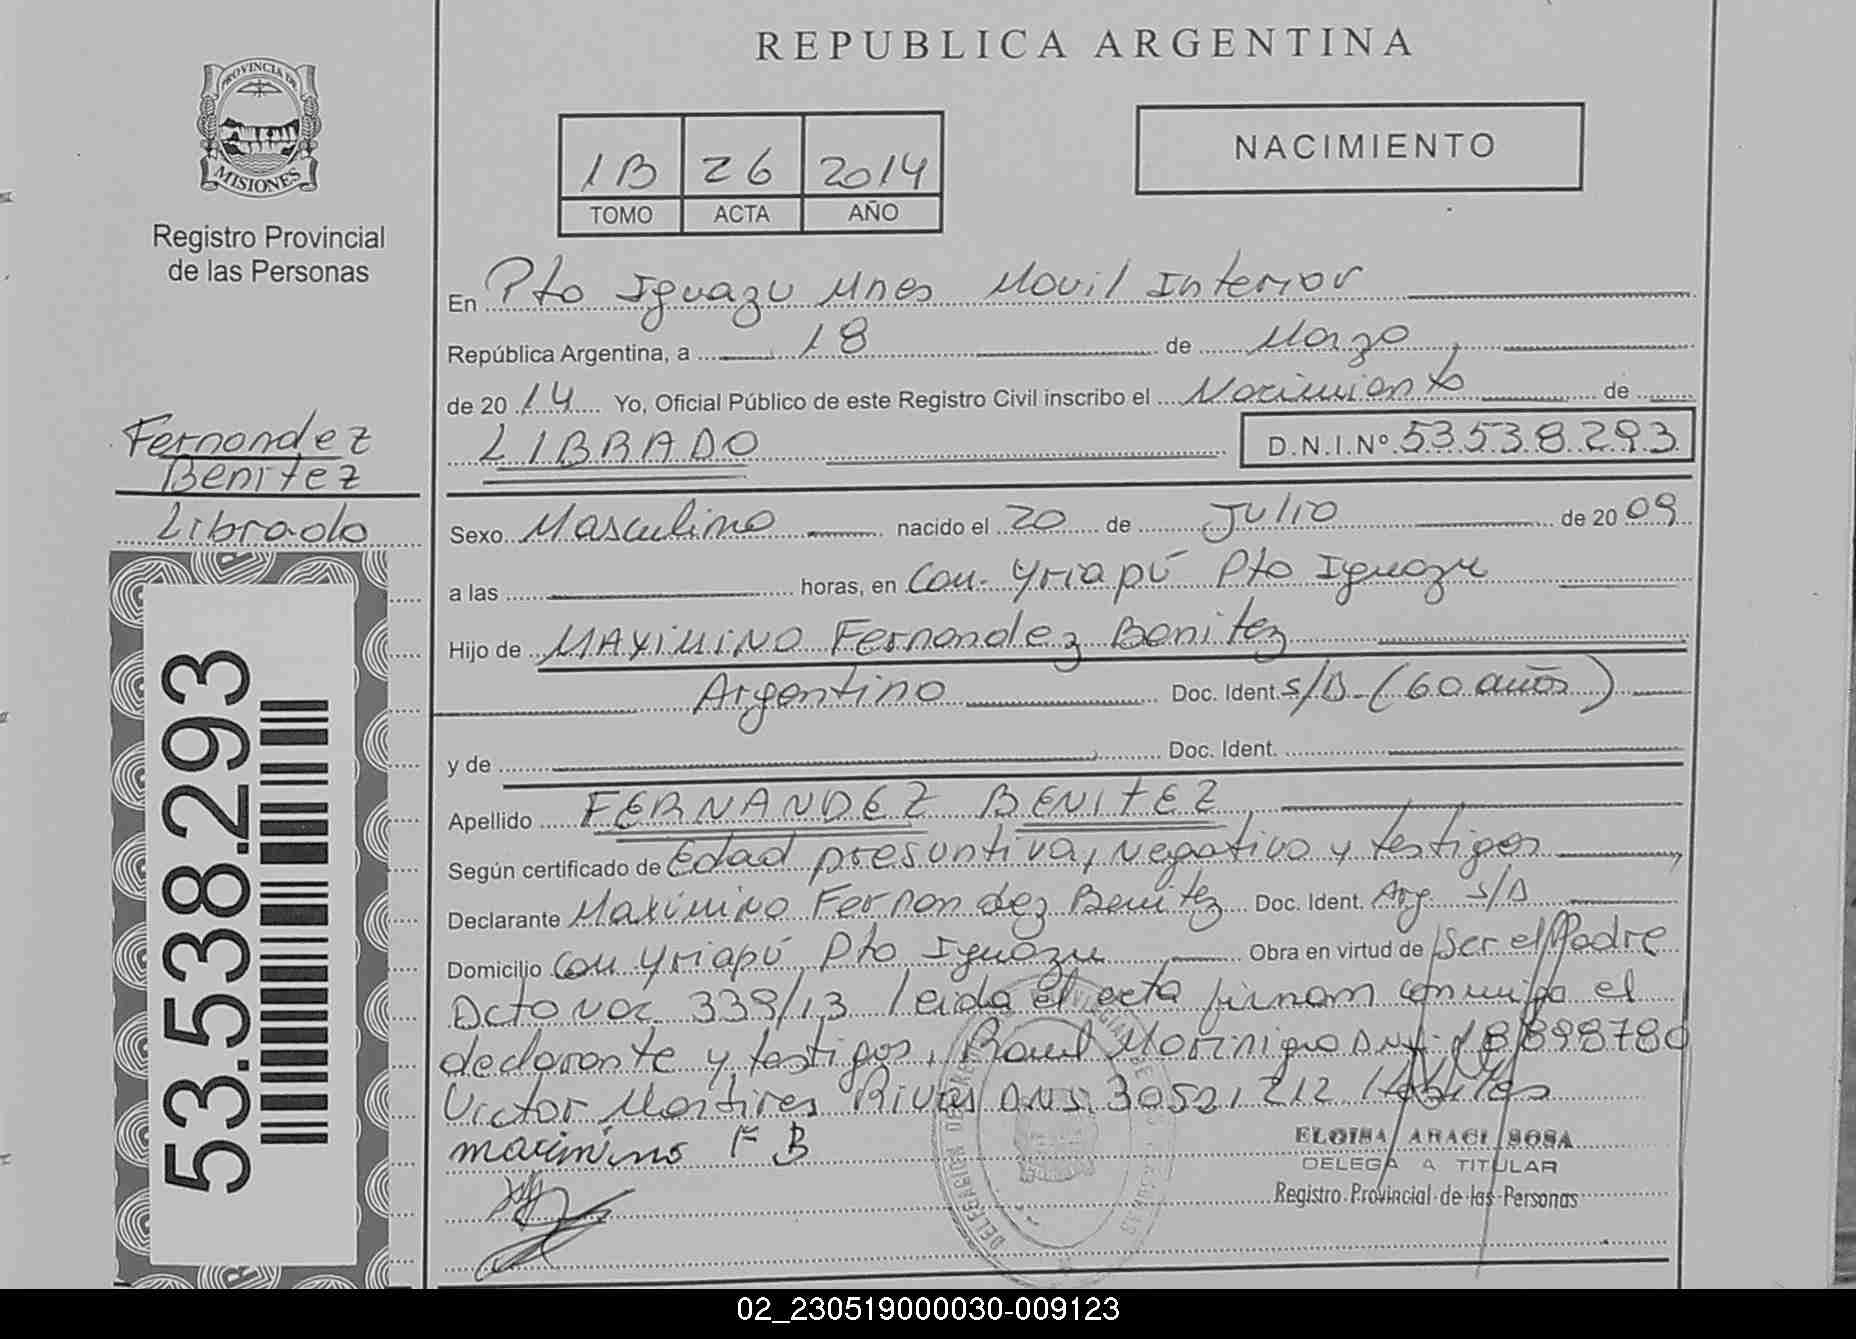 REPUBLICA ARGENTINA
PROVINCIA DE
MISIONES
Registro Provincial
de las Personas
1B 26 2014
TOMO ACTA AÑO
NACIMIENTO
En Pto Iguazu Mnes Movil Interior
República Argentina, a 18 de Marzo
de 2014 Yo, Oficial Público de este Registro Civil inscribo el Nacimiento de
LIBRADO D.N.I.Nº 53538293
Fernandez
Benitez
Librado
Sexo Masculino nacido el 20 de Julio de 2009
a las horas, en Com. Yriapú Pto Iguazu
Hijo de MAXIMINO Fernandez Benitez
Argentino Doc. Ident. S/D - (60 años)
y de Doc. Ident.
Apellido FERNANDEZ BENITEZ
Según certificado de Edad presuntiva, Negativo y testigos
Declarante Maximino Fernandez Benitez Doc. Ident. Arg. S/D
Domicilio Com Yriapú Pto Iguazu Obra en virtud de Ser el Padre
Dcto 339/13 leida el acta firman conmigo el
declarante y testigos, Raul Morinigo DNI 18898780
Victor Martires Rivas DNI. 30521212 Habiles
maximino F B
ELOISA ARACI SOSA
DELEGA A TITULAR
Registro Provincial de las Personas
53.538.293
02_230519000030-009123